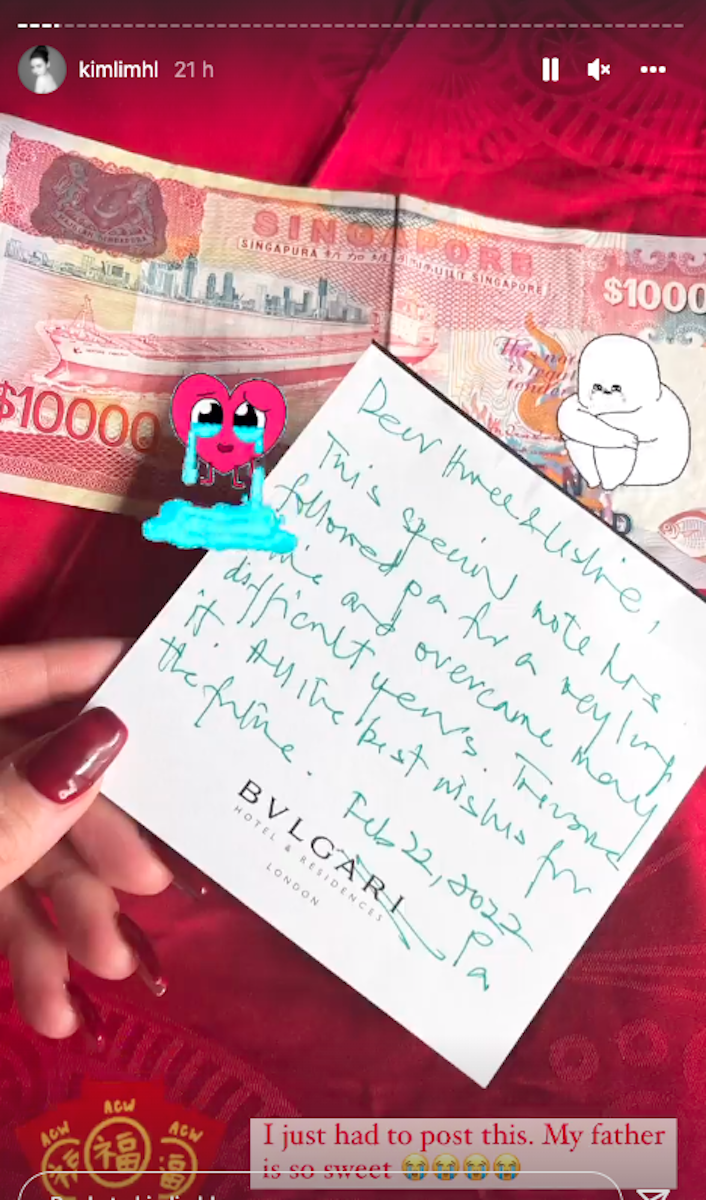 kimlimhl 21 h
SINGAPORE
SINGAPURA SINGAPORE
$1000
$10000
Dear & Leslie,
This special note has
followed pa for a very long
time and overcame many
difficult years. Treasure
it. All the best wishes for
the future.
Feb 22, 2022
Pa
BVLGARI
HOTEL & RESIDENCES
LONDON
ACW
ACW ACW
福 福 福
I just had to post this. My father
is so sweet 😭😭😭😭